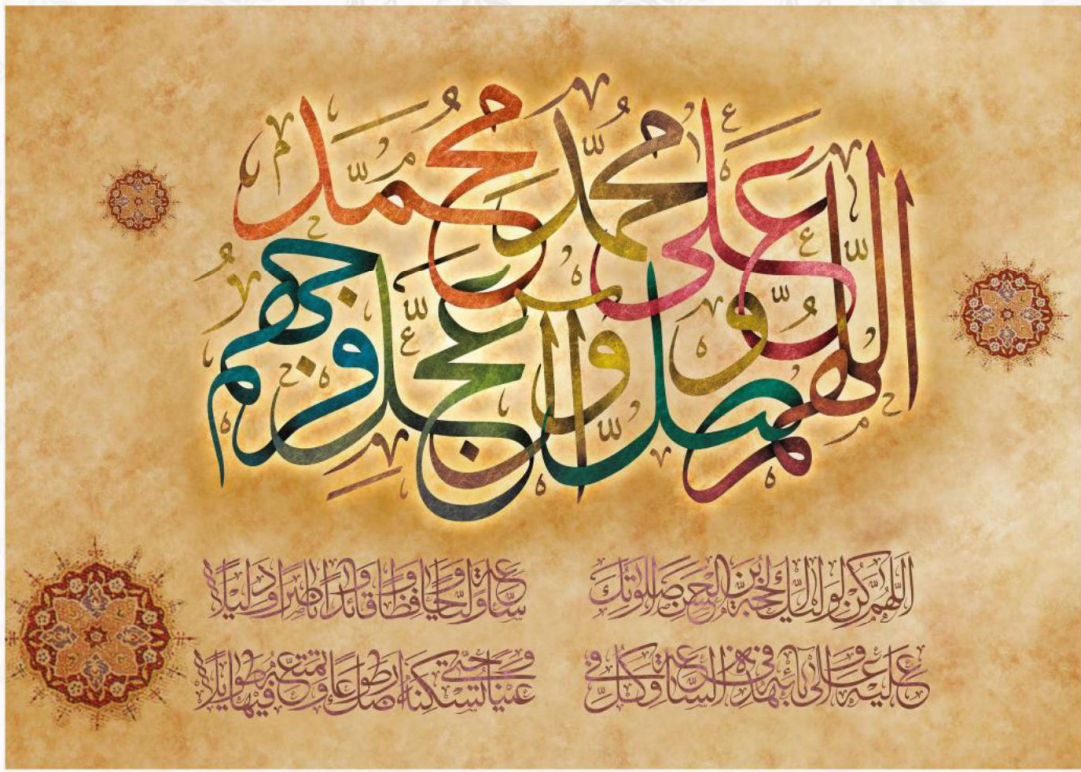 اللهم صل على محمد وآل محمد وعجل فرجهم
اَللّهُمَّ كُنْ لِوَلِيِّكَ الْحُجَّةِ بْنِ الْحَسَنِ صَلَواتُكَ
عَلَيْهِ وَعَلى آبائِهِ في هذِهِ السَّاعَةِ وَفي كُلِّ
ساعَةٍ وَلِيّاً وَحافِظاً وَقائِداً وَناصِراً وَدَليلاً
وَعَيْناً حَتّى تُسْكِنَهُ أَرْضَكَ طَوْعاً وَتُمَتِّعَهُ فيها طَويلاً